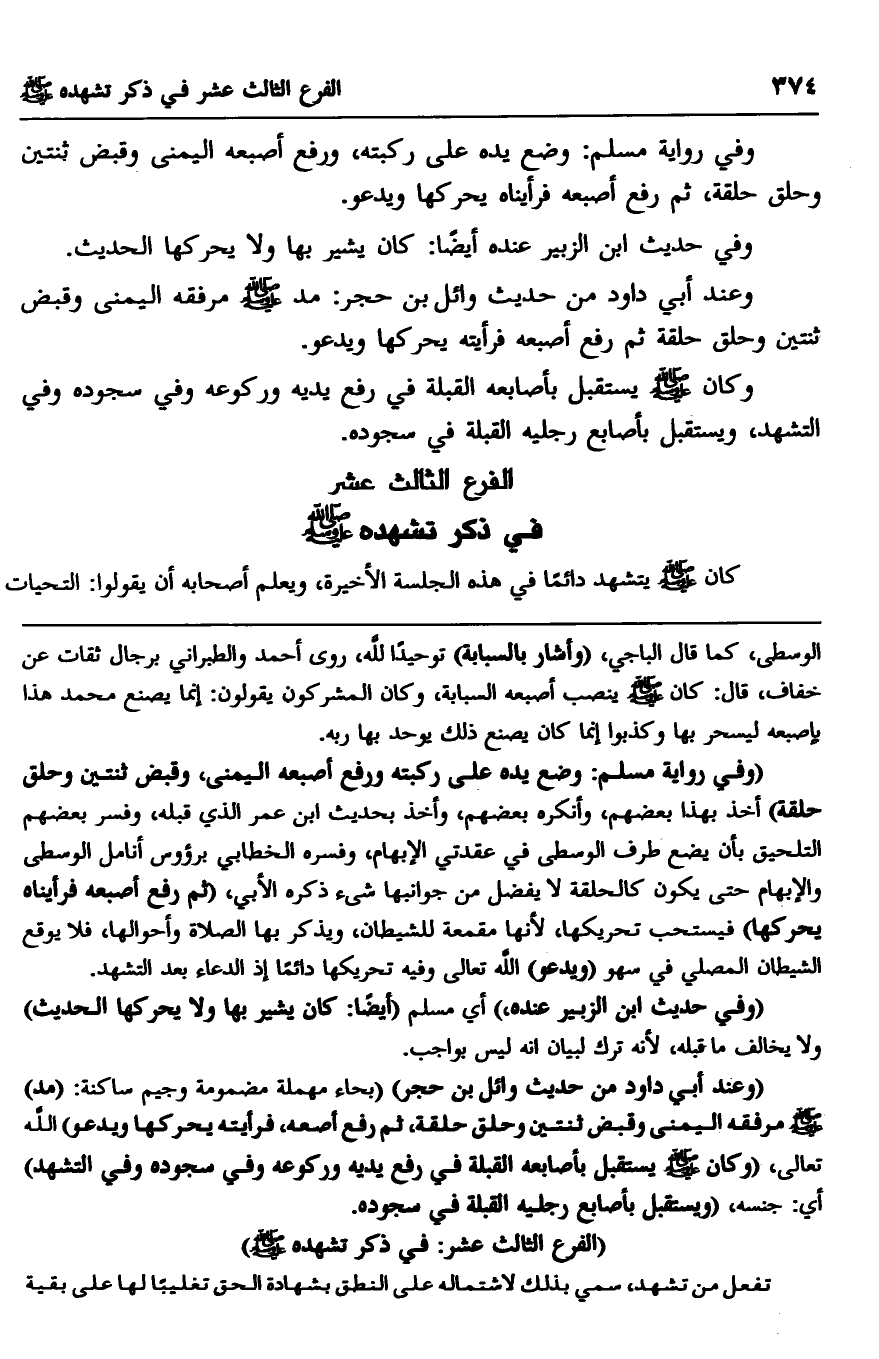 ٣٧٤ الفرع الثالث عشر في ذكر تشهده ﷺ
وفي رواية مسلم: وضع يده على ركبته، ورفع أصبعه اليمنى وقبض ثنتين
وحلق حلقة، ثم رفع أصبعه فرأيناه يحركها ويدعو.
وفي حديث ابن الزبير عنده أيضًا: كان يشير بها ولا يحركها الحديث.
وعند أبي داود من حديث وائل بن حجر: مد ﷺ مرفقه اليمنى وقبض
ثنتين وحلق حلقة ثم رفع أصبعه فرأيته يحركها ويدعو.
وكان ﷺ يستقبل بأصابعه القبلة في رفع يديه وركوعه وفي سجوده وفي
التشهد، ويستقبل بأصابع رجليه القبلة في سجوده.
الفرع الثالث عشر
في ذكر تشهده ﷺ
كان ﷺ يتشهد دائمًا في هذه الجلسة الأخيرة، ويعلم أصحابه أن يقولوا: التحيات
الوسطى، كما قال الباجي، (وأشار بالسبابة) توحيدًا للَّه، روى أحمد والطبراني برجال ثقات عن
خفاف، قال: كان ﷺ ينصب أصبعه السبابة، وكان المشركون يقولون: إنما يصنع محمد هذا
بإصبعه ليسحر بها وكذبوا إنما كان يصنع ذلك يوحد بها ربه.
(وفي رواية مسلم: وضع يده على ركبته ورفع أصبعه اليمنى، وقبض ثنتين وحلق
حلقة) أخذ بهذا بعضهم، وأنكره بعضهم، وأخذ بحديث ابن عمر الذي قبله، وفسر بعضهم
التلحيق بأن يضع طرف الوسطى في عقدتي الإبهام، وفسره الخطابي برؤوس أنامل الوسطى
والإبهام حتى يكون كالحلقة لا يفضل من جوانبها شىء ذكره الأبي، (ثم رفع أصبعه فرأيناه
يحركها) فيستحب تحريكها، لأنها مقمعة للشيطان، ويذكر بها الصلاة وأحوالها، فلا يوقع
الشيطان المصلي في سهو (ويدعو) اللَّه تعالى وفيه تحريكها دائمًا إذ الدعاء بعد التشهد.
(وفي حديث ابن الزبير عنده،) أي مسلم (أيضًا: كان يشير بها ولا يحركها الحديث)
ولا يخالف ما قبله، لأنه ترك لبيان انه ليس بواجب.
(وعند أبي داود من حديث وائل بن حجر) (بحاء مهملة مضمومة وجيم ساكنة: (مد)
ﷺ مرفقه اليمنى وقبض ثنتين وحلق حلقة، ثم رفع أصعه، فرأيته يحركها ويدعو) اللَّه
تعالى، (وكان ﷺ يستقبل بأصابعه القبلة في رفع يديه وركوعه وفي سجوده وفي التشهد)
أي: جنسه، (ويستقبل بأصابع رجليه القبلة في سجوده.
(الفرع الثالث عشر: في ذكر تشهده ﷺ)
تفعل من تشهد، سمي بذلك لاشتماله على النطق بشهادة الحق تغليبًا لها على بقية